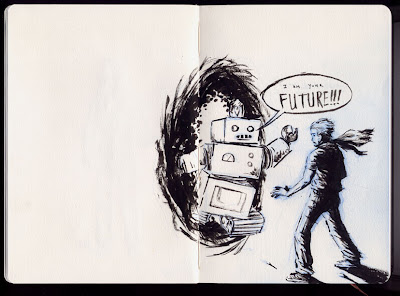 I am your
FUTURE!!!